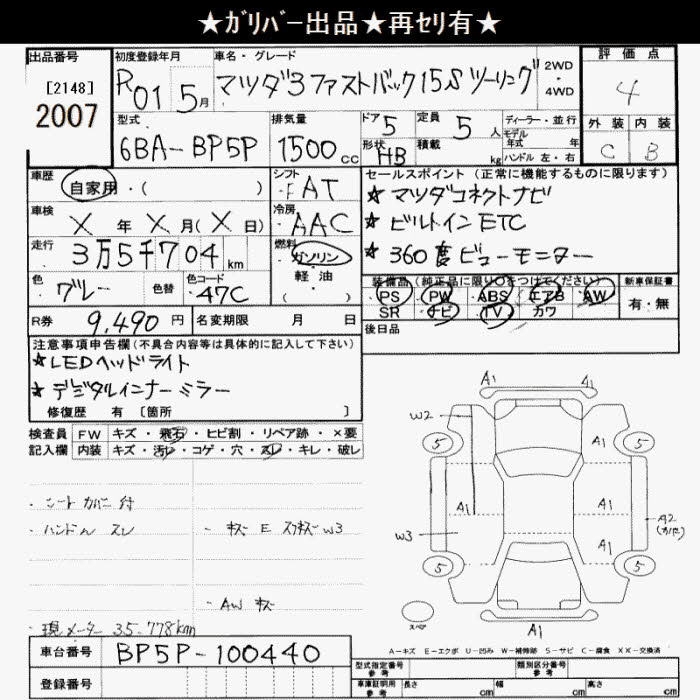 ★ｶﾞﾘﾊﾞｰ出品★再ｾﾘ有★
出品番号
[2148]
2007
初度登録年月
R01 5月
車名・グレード
マツダ3 ファストバック 15S ツーリング
2WD
・
4WD
評価点
4
外装 内装
C B
型式
6BA-BP5P
排気量
1500cc
ドア 5
定員 5人
形状 HB
積載 kg
ディーラー・並行
モデル
年式 年
ハンドル 左・右
車歴
自家用・( )
シフト
FAT
車検
X年X月(X日)
冷房
AAC
走行
3万5千704km
燃料
ガソリン
・
軽油
・
( )
色
グレー
色替
色コード
47C
R券 9,490円
名変期限 月 日
セールスポイント (正常に機能するものに限ります)
★マツダコネクトナビ
★ビルトインETC
★360度ビューモニター
装備品(純正品に限り○をつけてください)
・PS・PW・ABS・エアB・AW
SR・ナビ・TV・カワ
新車保証書
有・無
後日品
注意事項申告欄(不具合内容等は具体的に記入して下さい)
★LEDヘッドライト
★デジタルインナーミラー
修復歴 有 [箇所 ]
検査員
記入欄
FW キズ・飛石・ヒビ割・リペア跡・×要
内装 キズ・汚レ・コゲ・穴・スレ・キレ・破レ
・シートカバー付
・ハンドル スレ
・キズ E スリキズ W3
・AW キズ
・現メーター 35.778km
A1 A1
W2
5 5
A1
A1 A1
W3
A1
A2
5 5
スペア
A1
A－キズ E－エクボ U－凹み W－補修跡 S－サビ C－腐食 XX－交換済
車台番号 BP5P-100440
登録番号
型式指定番号
参考
類別区分番号
参考
車庫証明用
参考
長さ cm
幅 cm
高さ cm